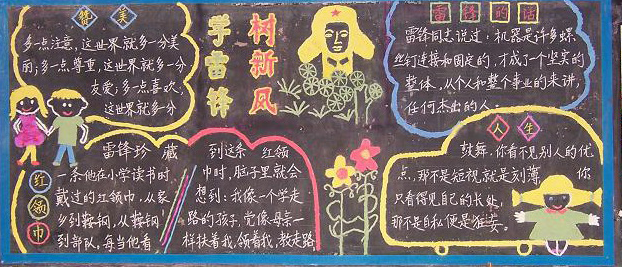 赞美
多一点注意，这世界就多一分美
丽；多一点尊重，这世界就多一分
友爱；多一点喜欢，
这世界就多一分
学雷锋
树新风
雷锋的话
雷锋同志说过，机器是许多螺
丝钉连接和固定的，才成了个坚实的
整体，从个人和整个事业的来讲，
任何杰出的人。
红领巾
雷锋珍藏
一条他在小学读书时
戴过的红领巾，从家
乡到鞍钢，从鞍钢
到部队，每当他看
到这条红领
巾时，脑子里就会
想到：我像一个学走
路的孩子，党像母亲一
样扶着我，领着我，教走路
人生
鼓舞，你看不见别人的优
点，那不是短视就是刻薄，你
只看得见自己的长处，
那不是自私便是狂妄。